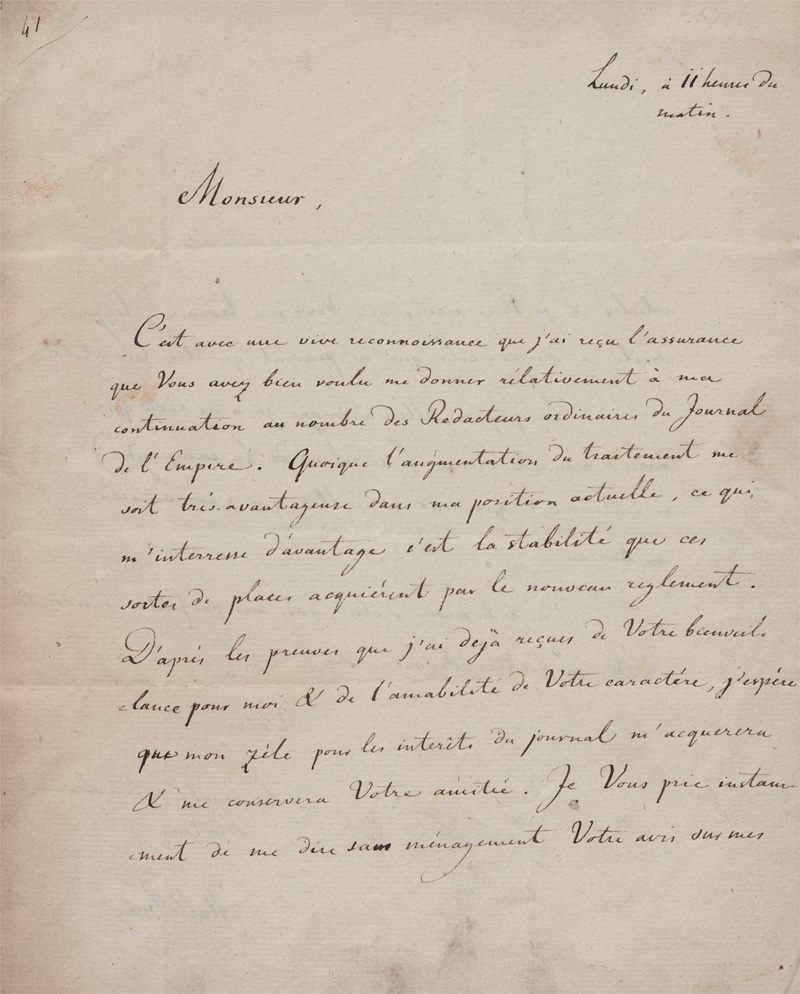 41
Lundi, à 11 heures du
matin.
Monsieur,
C'est avec une vive reconnoissance que j'ai reçu l'assurance
que Vous avez bien voulu me donner rélativement à ma
continuation au nombre des Redacteurs ordinaires du Journal
de l'Empire. Quoique l'augmentation du traitement me
soit trés-avantageuse dans ma position actuelle, ce qui
m'interresse d'avantage c'est la stabilité que ces
sortes de places acquiérent par le nouveau reglement.
D'aprés les preuves que j'ai dejà reçues de Votre bienveil-
-lance pour moi & de l'amabilité de Votre caractére, j'espére
que mon zéle pour les interêts du journal m'acquerera
& me conservera Votre amitié. Je Vous prie instam-
-ment de me dire sans ménagement Votre avis sur mes